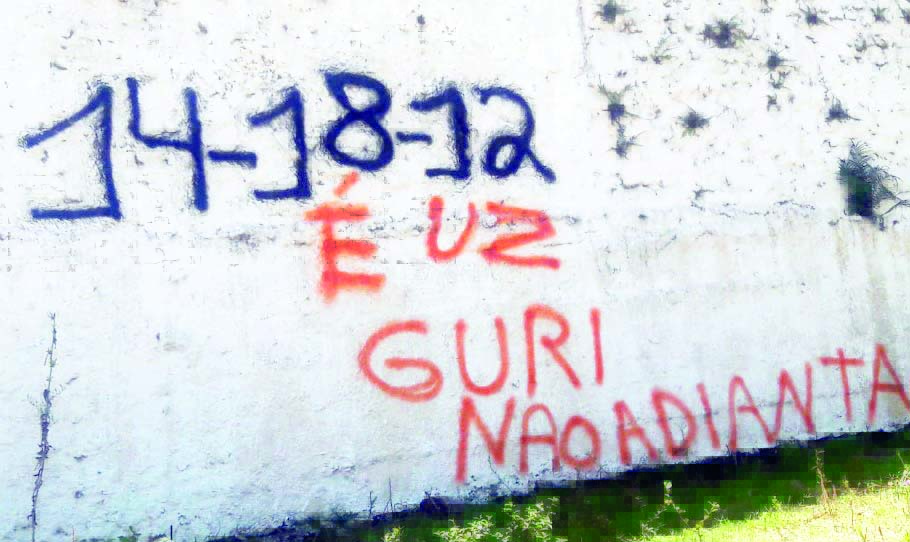 14-18-12
É UZ
GURI
NAO ADIANTA